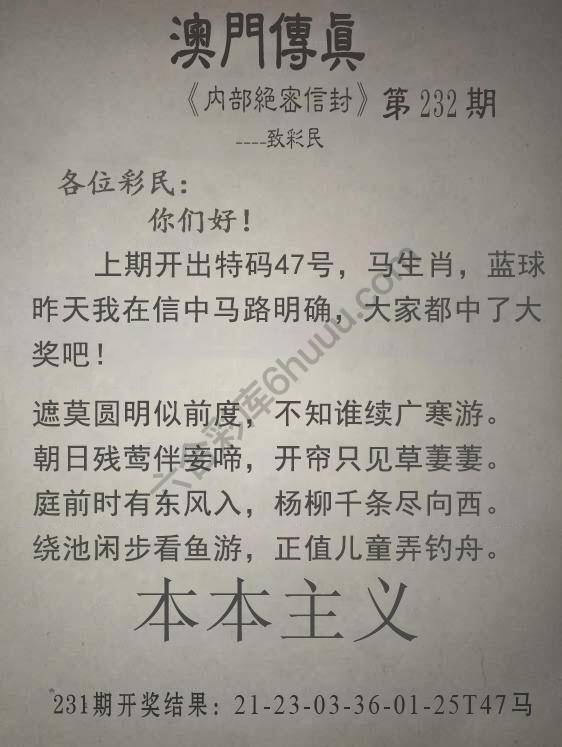 澳門傳眞
《内部絕密信封》第232期
----致彩民
各位彩民：
你们好！
上期开出特码47号，马生肖，蓝球
昨天我在信中马路明确，大家都中了大
奖吧！
遮莫圆明似前度，不知谁续广寒游。
朝日残莺伴妾啼，开帘只见草萋萋。
庭前时有东风入，杨柳千条尽向西。
绕池闲步看鱼游，正值儿童弄钓舟。
本本主义
231期开奖结果：21-23-03-36-01-25T47马
六合彩库6huuu.com